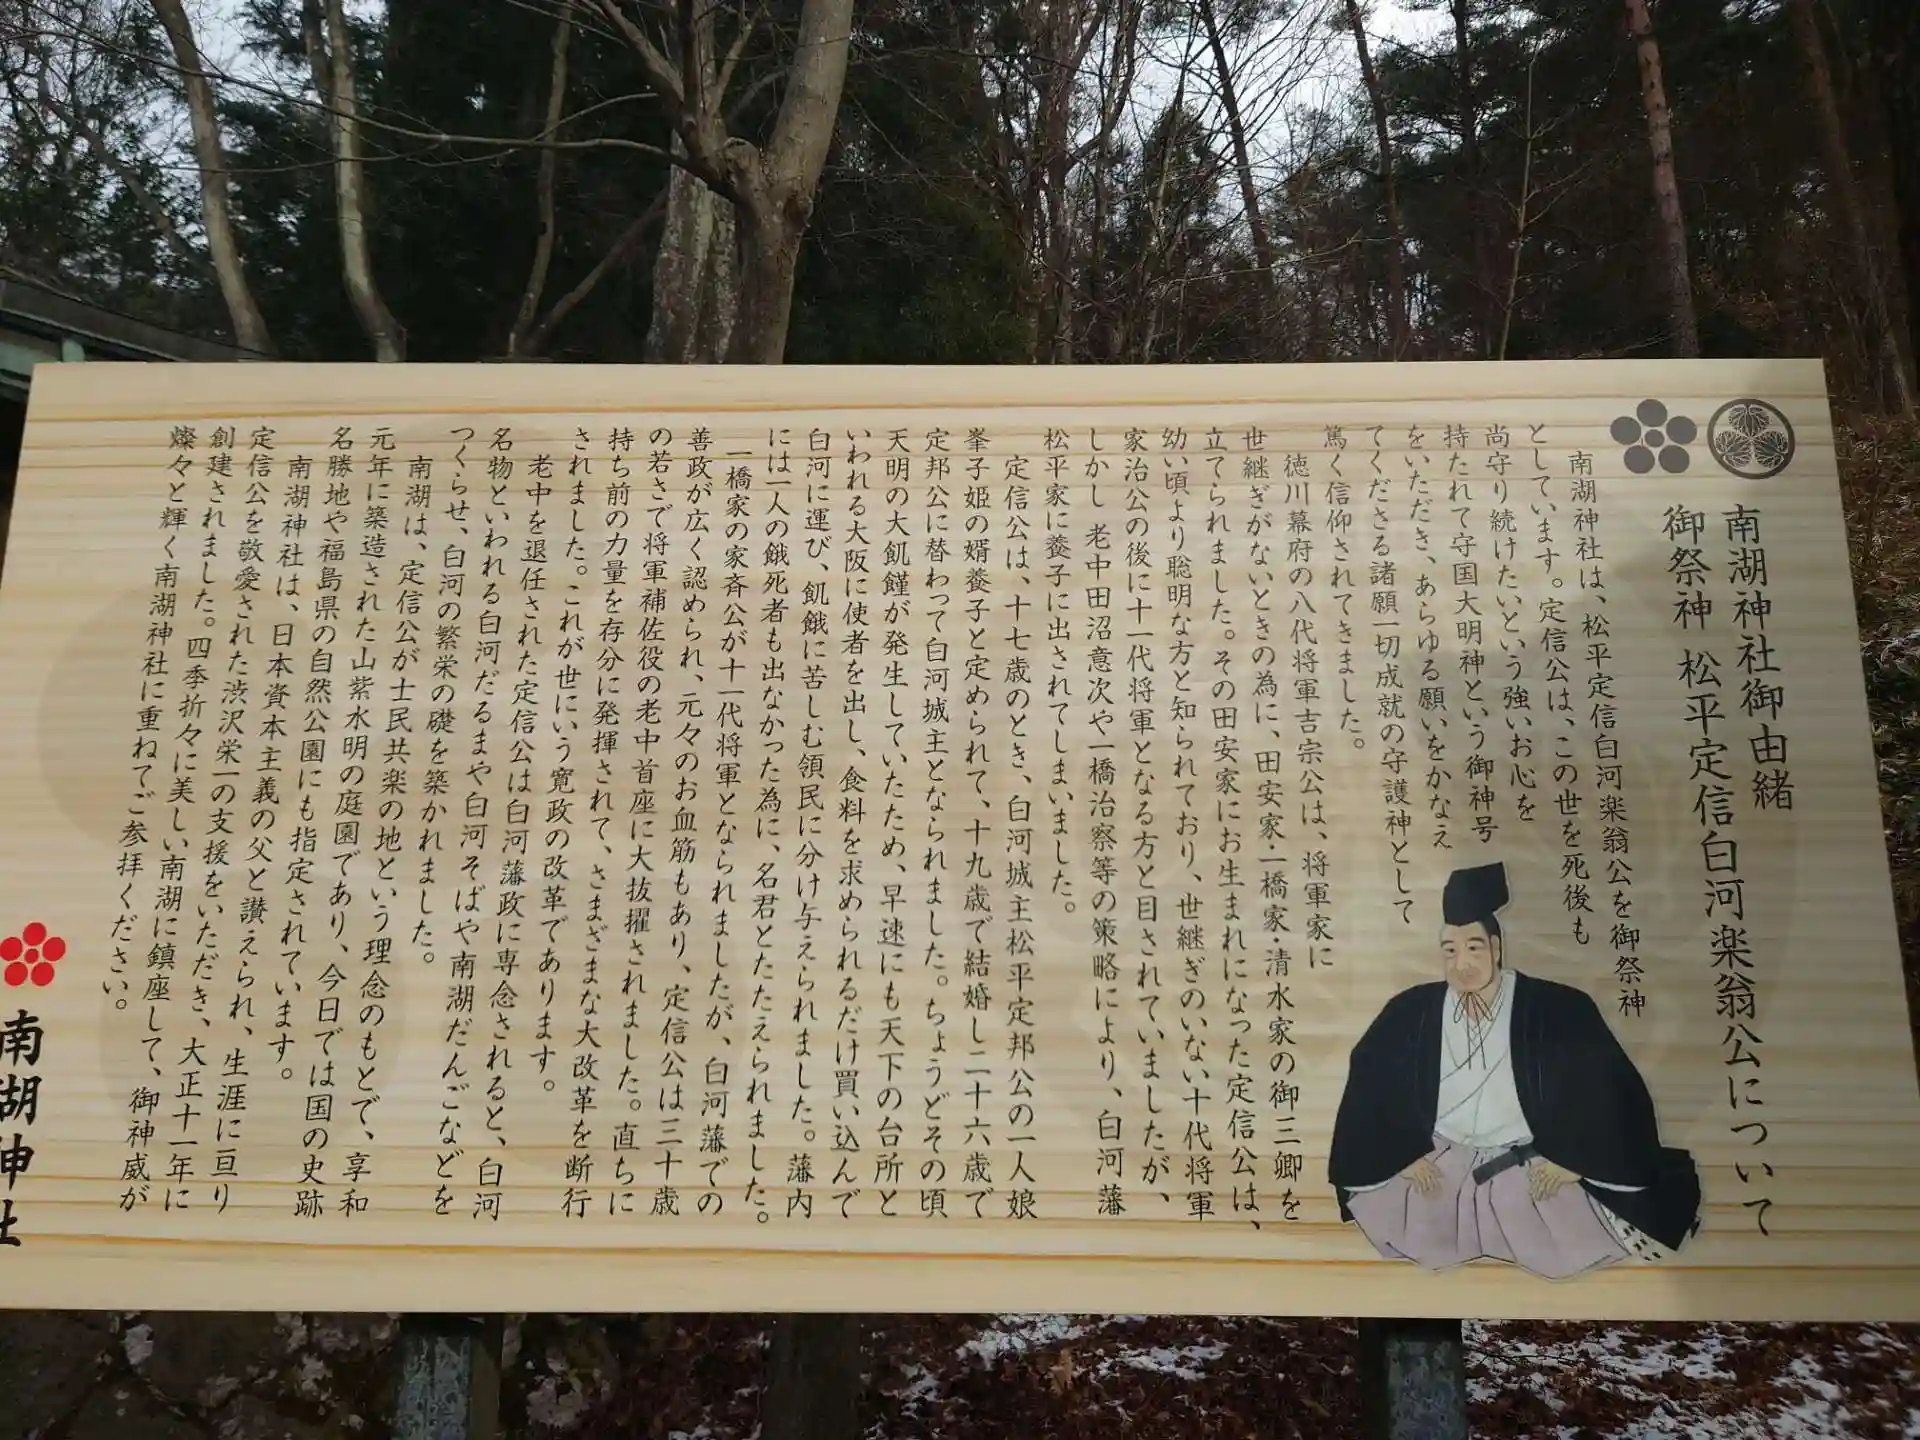 南湖神社御由緒
御祭神 松平定信白河楽翁公について
南湖神社は、松平定信白河楽翁公を御祭神
としています。定信公は、この世を死後も
尚守り続けたいという強いお心を
持たれて守国大明神という御神号
をいただき、あらゆる願いをかなえ
てくださる諸願一切成就の守護神として
篤く信仰されてきました。
徳川幕府の八代将軍吉宗公は、将軍家に
世継ぎがないときの為に、田安家・一橋家・清水家の御三卿を
立てられました。その田安家にお生まれになった定信公は、
幼い頃より聡明な方と知られており、世継ぎのいない十代将軍
家治公の後に十一代将軍となる方と目されていましたが、
しかし 老中田沼意次や一橋治察等の策略により、白河藩
松平家に養子に出されてしまいました。
定信公は、十七歳のとき、白河城主松平定邦公の一人娘
峯子姫の婿養子と定められて、十九歳で結婚し二十六歳で
定邦公に替わって白河城主となられました。ちょうどその頃
天明の大飢饉が発生していたため、早速にも天下の台所と
いわれる大阪に使者を出し、食料を求められるだけ買い込んで
白河に運び、飢餓に苦しむ領民に分け与えられました。藩内
には一人の餓死者も出なかった為に、名君とたたえられました。
一橋家の家斉公が十一代将軍となられましたが、白河藩での
善政が広く認められ、元々のお血筋もあり、定信公は三十歳
の若さで将軍補佐役の老中首座に大抜擢されました。直ちに
持ち前の力量を存分に発揮されて、さまざまな大改革を断行
されました。これが世にいう寛政の改革であります。
老中を退任された定信公は白河藩政に専念されると、白河
名物といわれる白河だるまや白河そばや南湖だんごなどを
つくらせ、白河の繁栄の礎を築かれました。
南湖は、定信公が士民共楽の地という理念のもとで、享和
元年に築造された山紫水明の庭園であり、今日では国の史跡
名勝地や福島県の自然公園にも指定されています。
南湖神社は、日本資本主義の父と讃えられ、生涯に亘り
定信公を敬愛された渋沢栄一の支援をいただき、大正十一年に
創建されました。四季折々に美しい南湖に鎮座して、御神威が
燦々と輝く南湖神社に重ねてご参拝ください。
南湖神社